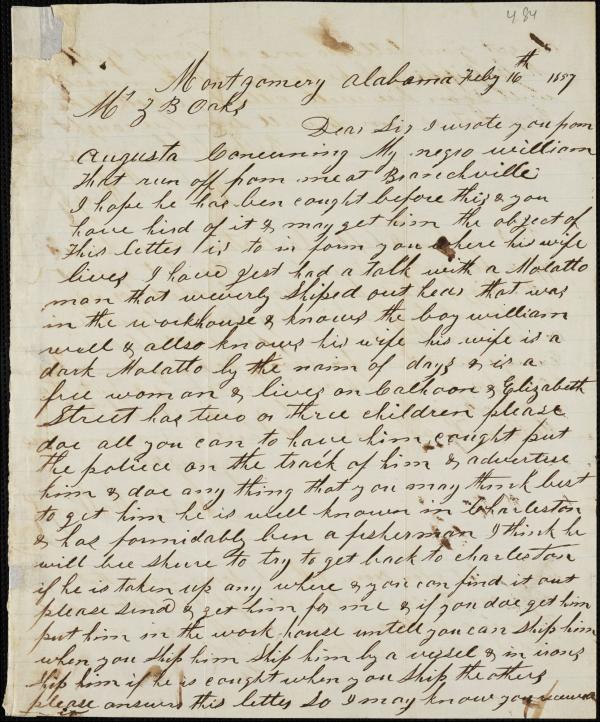 484
Montgomery Alabama Feby 16th 1857
Mr Z B Oakes
Dear Sir I wrote you from
Augusta Concerning My negro william
That run off from me at Branchville
I hope he has ben caught before this & you
have hird of it & may get him the object of
This letter is to in form you where his wife
lives I have jest had a talk with a Molatto
man that weverly Shiped out hear that was
in the workhouse & knows the boy william
well & allso knows his wife his wife is a
dark Molatto by the naim of days & is a
free woman & lives on Calhoon & Elizabeth
Street has two or three children please
doe all you can to have him caught put
the poliece on the track of him & advertise
him & doe any thing that you may think best
to get him he is well known in Charleston
& has formidably ben a fisherman I think he
will bee shure to try to get back to Charleston
if he is taken up any where & you can find it out
please send & get him for me & if you doe get him
put him in the work house untell you can ship him
when you ship him ship him by a vessel & in irons
ship him if he is caught when you ship the others
please answer this letter so I may know you